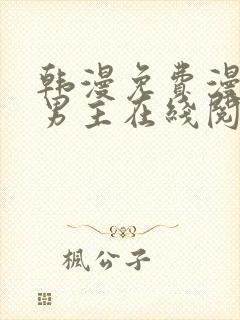 韩漫免费漫
男主在线阅
楓公子